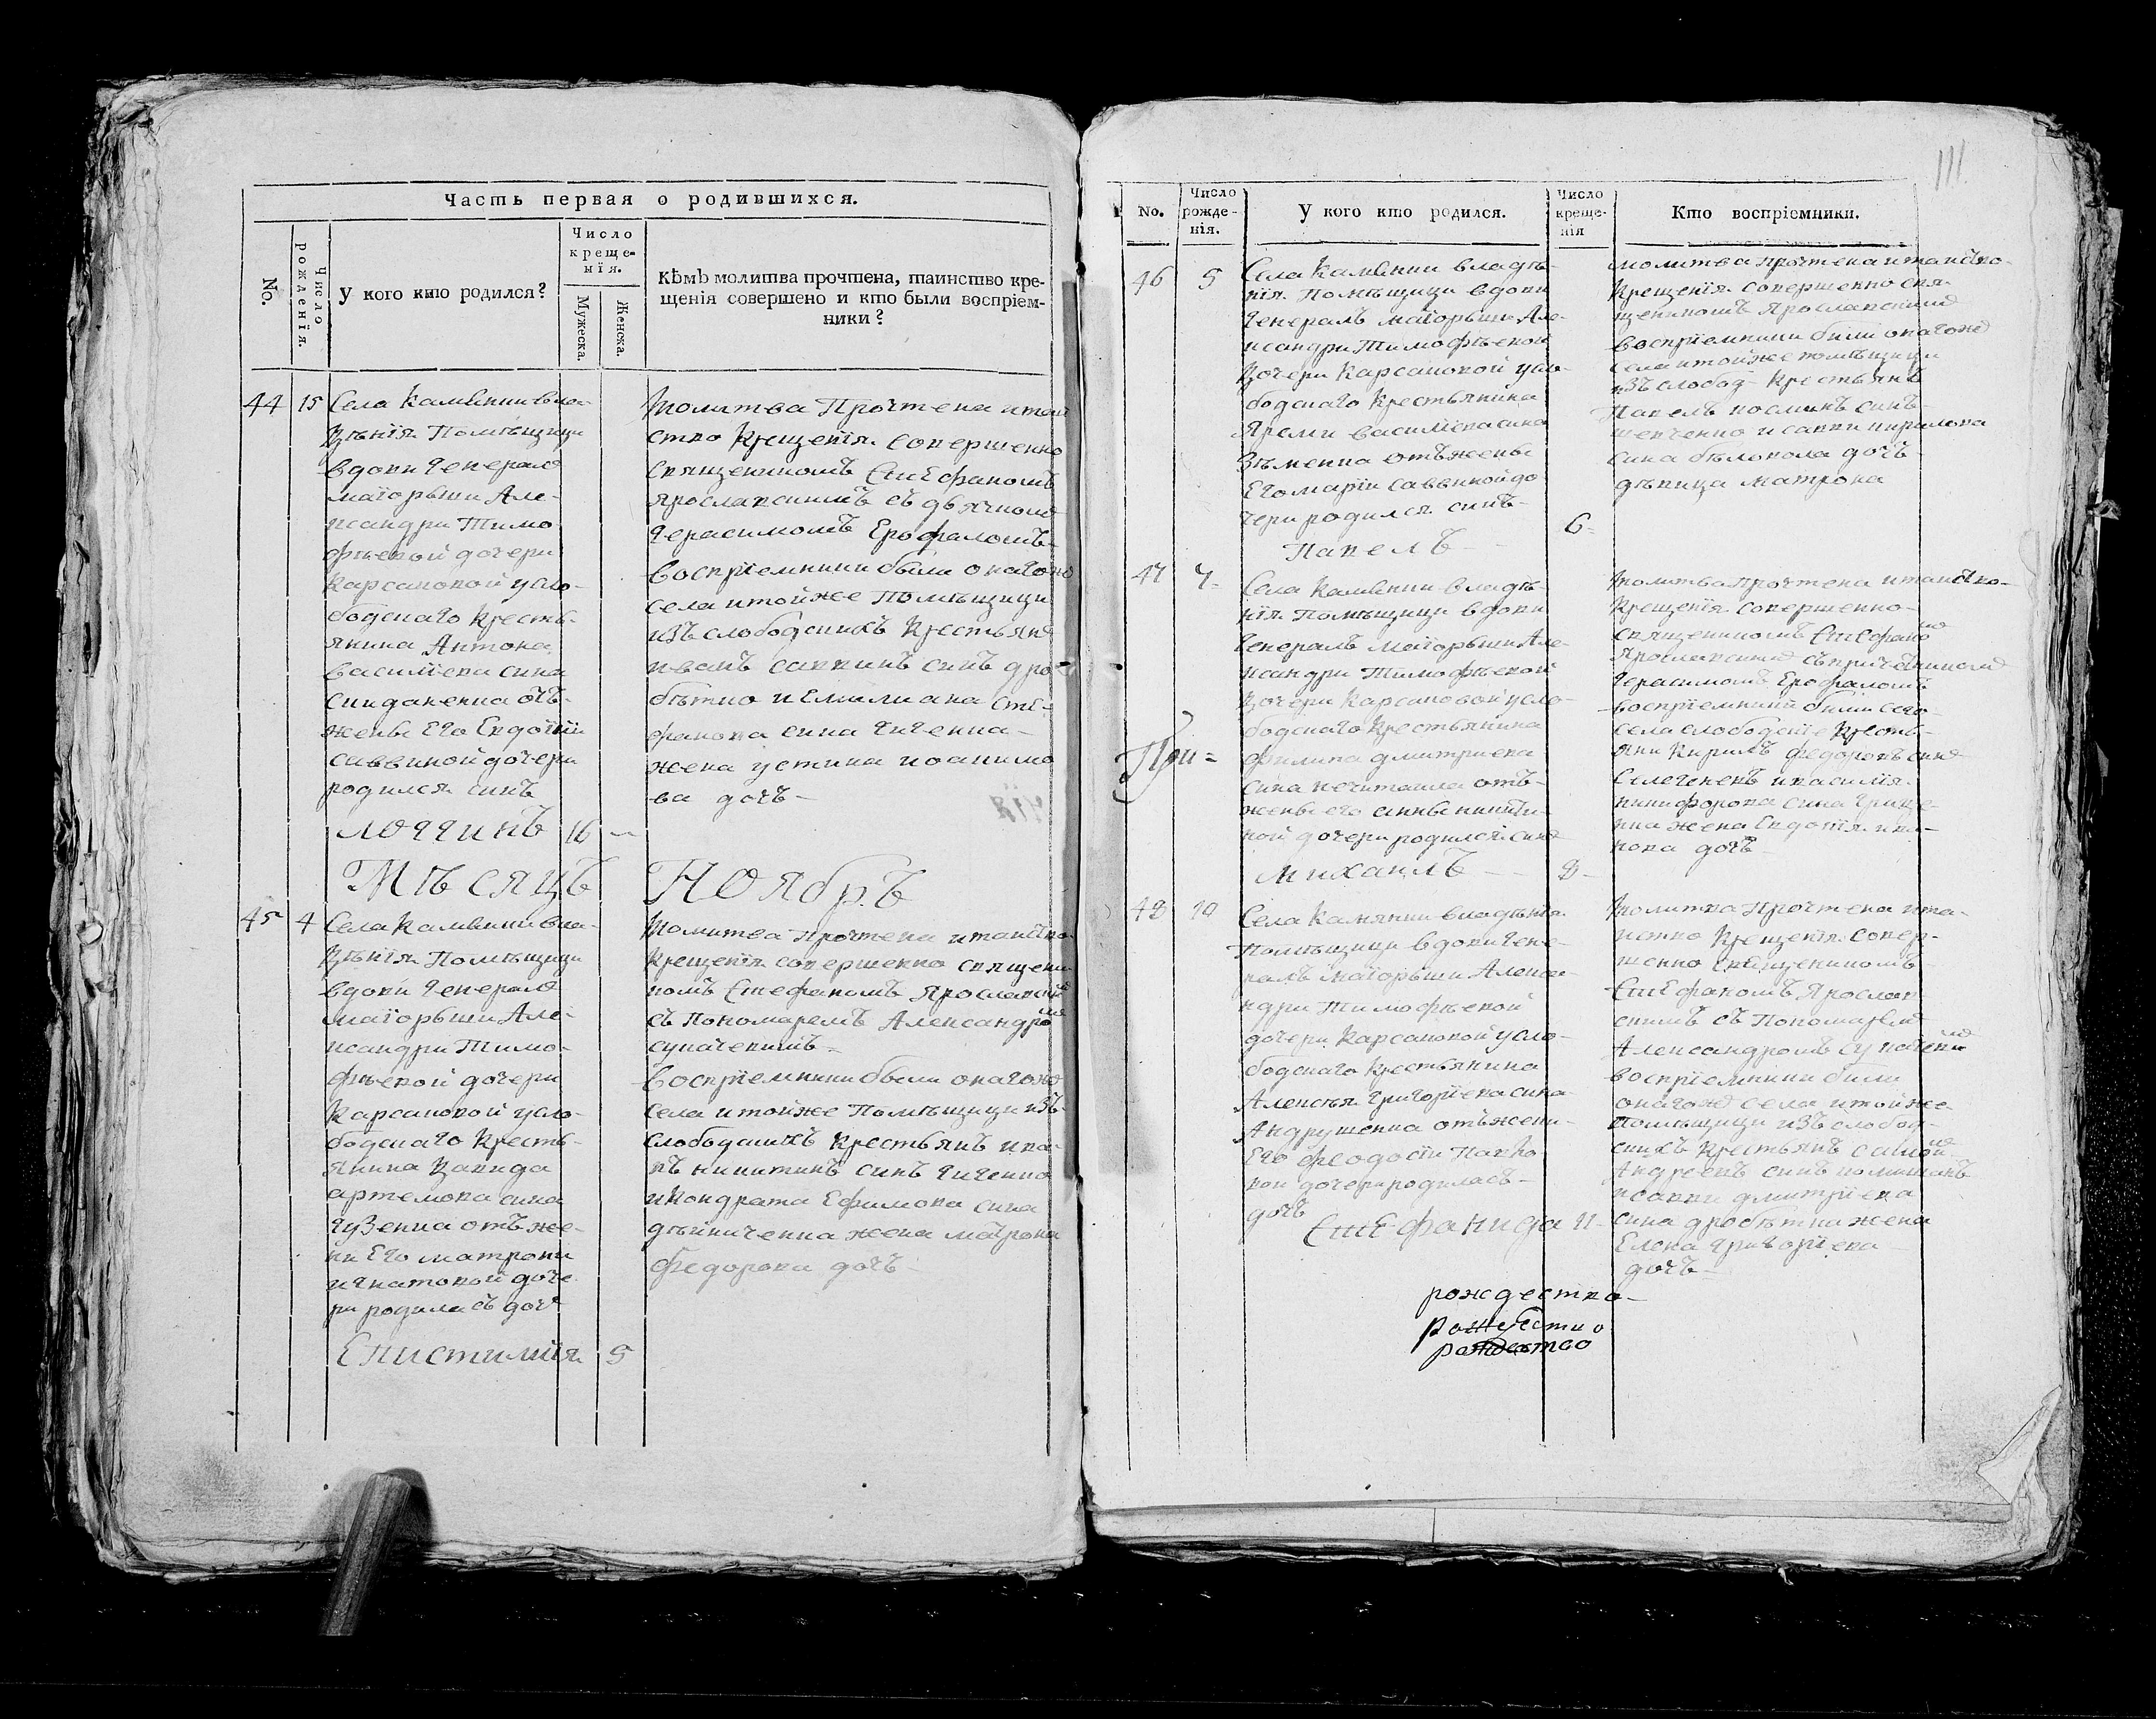 Часть первая о родившихся.
No.
Число рожденія.
У кого кто родился?
Число
креще-
нїя.
Мужеска.
Женска.
Кѣмъ молитва прочтена, таинство кре-
щенія совершено и кто были воспріем-
ники?
44 15 Села Каменки вла-
дѣнїя Помѣщици
вдови Генералъ
маїорьши Але-
ксандри Тимо
фѣевой дочери
Карсаковой усло-
бодскаго кресть-
янина Антона
василїева сина
отъ
жены Его Евдокїи
саввиной дочери
родился синъ
Логгинъ 16
молитва Прочтена и таин
ство крещенїя совершенно
священикомъ Стефаномъ
Ярославскимъ съ дьячкомъ
Герасимомъ Ерофаломъ
воспрїемники были онагожъ
села и тойже Помѣщици
изъ слободскихъ крестьянъ
иванъ саввинъ синъ дро
бѣтко и Емилиана Сте-
фанова сина Гигенка
жена устина иоакимо
ва дочъ
Мѣсяцъ Ноябръ
45 4 Села Каменки вла-
дѣнїя Помѣщици
вдови Генералъ
маїорьши Але-
ксандри Тимо-
фѣевой дочери
Карсаковой усло-
бодскаго кресть-
янина
артемова сина
Гузенка отъ же-
ни Его матрони
игнатовой доче-
ри родиласъ дочъ
Епистимїя 5
Молитва прочтена и таинство
крещенїя совершенно священи
комъ Стефаномъ Ярославскимъ
съ Пономаремъ Александромъ
воспрїемники были онагожъ
села и тойже Помѣщици изъ
слободскихъ крестьянъ
никитинъ синъ Гигенко
и Кондрата Ефимова сина
жена матрона
Федорова дочъ
111.
No.
Число
рожде-
нія.
У кого кто родился.
Число
креще-
нія
Кто воспріемники.
46 5 Села Каменки владѣ-
нїя Помѣщици вдови
Генералъ маїорьши Але-
ксандри Тимофѣевой
дочери Карсаковой усло-
бодскаго крестьянина
Яреми василїева сина
отъ жены
Его марїи саввиной до
чери родился синъ
Павелъ 6
молитва прочтена и таинство
крещенїя совершенно свя-
щеникомъ Ярославскимъ
воспрїемники были онагожъ
села и тойже помѣщици
изъ слобод- крестьянъ
Павелъ косминъ синъ
шевченко и савви кирилова
сина бѣлокола дочъ
дѣвица матрона
47 7 Села Каменки владѣ-
нїя Помѣщици вдови
Генералъ маїорьши Але-
ксандри Тимофѣевой
дочери Карсаковой усло-
бодскаго крестьянина
При=
филипа дмитриева
сина нечитаила отъ
жены его анны никити-
ной дочери родился синъ
михаилъ 8
молитва прочтена и таинство
крещенїя совершенно
священикомъ Стефаномъ
Ярославскимъ съ причетникомъ
Герасимомъ Ерофаломъ
воспрїемники были сего
села слободскїе кресть-
яни Кирилъ федоровъ синъ
и василїя
никифорова сина
жена Евдокїя ива-
нова дочъ
48 10 Села Камянки владѣнїя
Помѣщици вдови Гене-
ралъ маїорьши Алекса-
ндри Тимофѣевой
дочери Карсаковой усло-
бодскаго крестьянина
Алексѣя Григорїева сина
Андрушенка отъ жени
Его феодосїи Павло
вой дочери родиласъ
дочъ
Стефанида 11
молитва Прочтена и та-
инство крещенїя совер-
шенно священикомъ
Стефаномъ Ярослав
скимъ съ Пономаремъ
Александромъ
воспрїемники были
онагожъ села и тойже
Помѣщици изъ слобод-
скихъ крестьянъ
Андреевъ синъ
и савви дмитрїева
сина дробѣтки жена
Елена Григорїева
дочъ
рождество
рождество
рождество